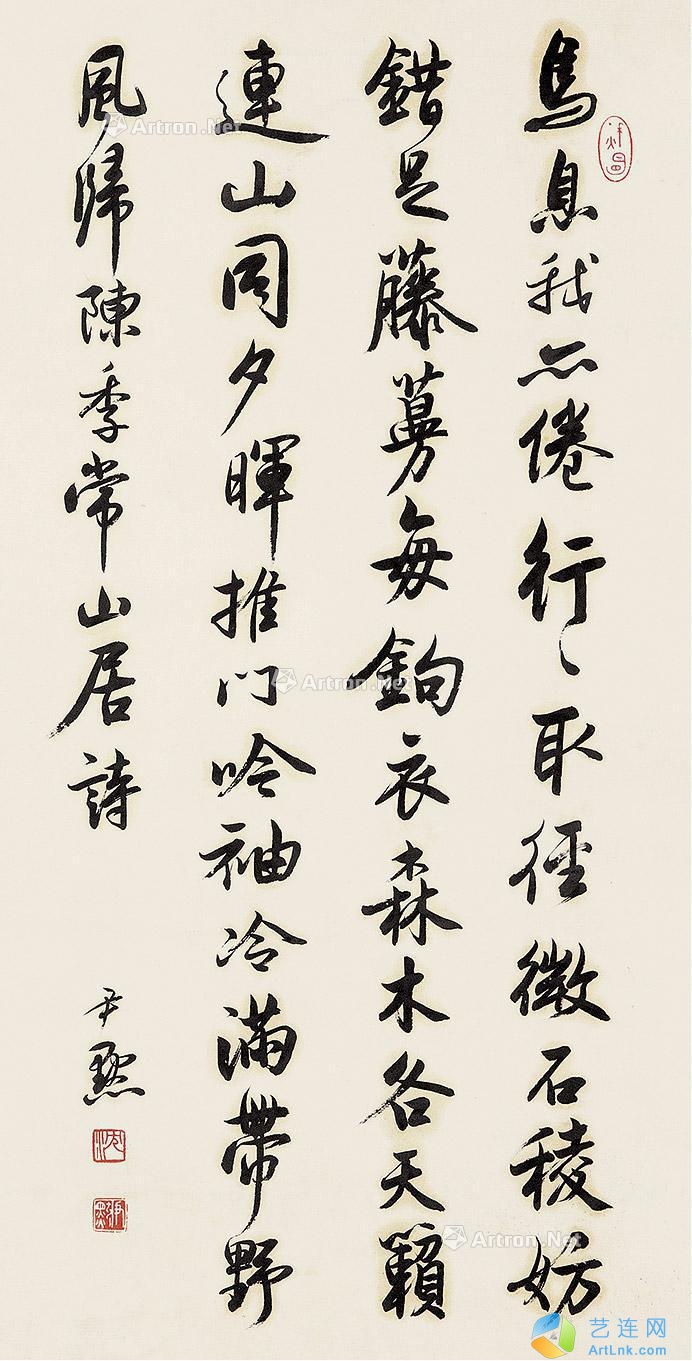 鳥息我亦倦行〻取徑微石稜妨
錯足藤蔓每鉤衣森木各天籟
連山同夕暉推門吟袖冷滿帶野
風歸陳季常山居詩
尹默
沈
尹默
Artron.Net
Artron.Net
Artron.Net
艺连网
ArtLnk.com